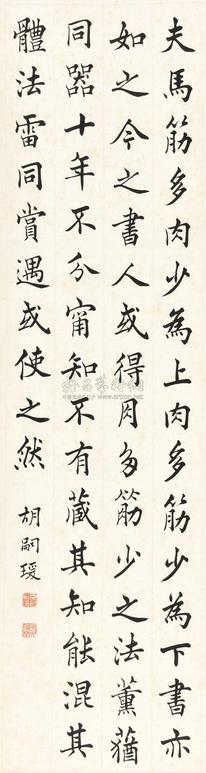 夫馬筋多肉少為上肉多筋少為下書亦
如之今之書人或得肉多筋少之法薰蕕
同器十年不分甯知不有藏其知能混其
體法雷同賞遇或使之然
胡嗣瑗